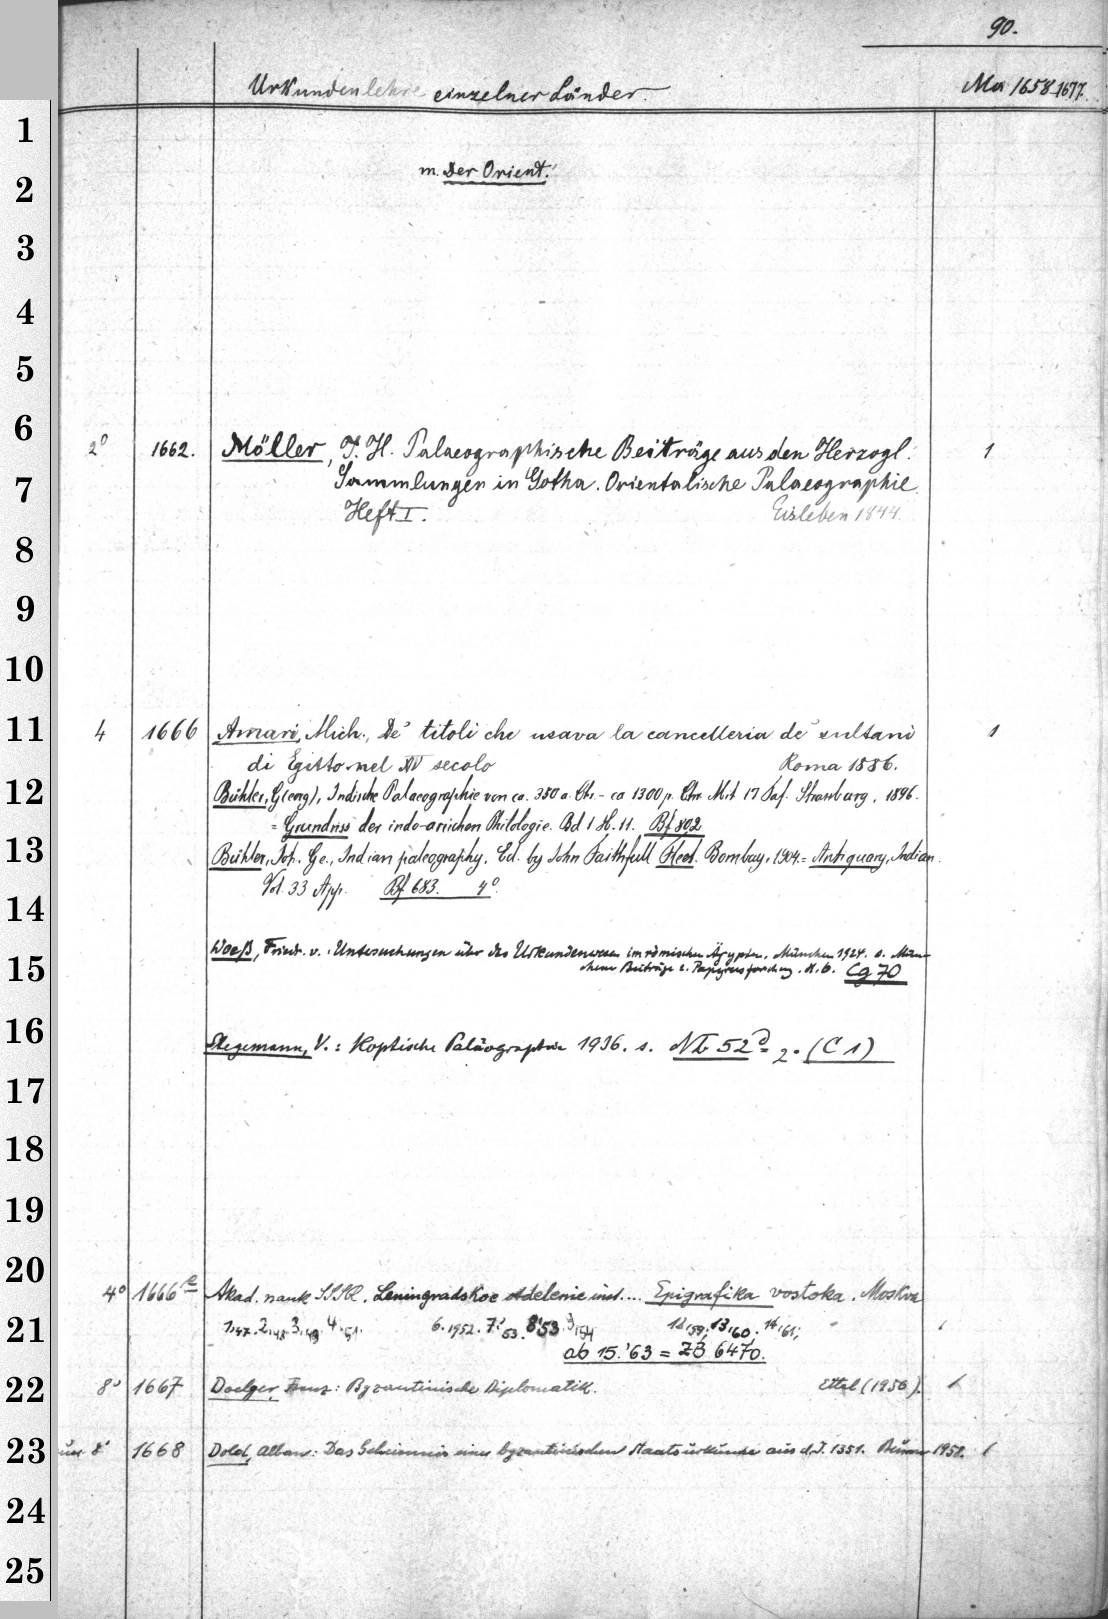 90.
Urkundenlehre einzelner Länder.
Ma 1658-1677.
1
m. Der Orient.
2
3
4
5
6
2° 1662. Möller, J. H. Palaeographische Beiträge aus den Herzogl. 1
7 Sammlungen in Gotha. Orientalische Palaeographie
Heft I. Eisleben 1844.
8
9
10
11 4 1666 Amari, Mich., De' titoli che usava la cancelleria de' sultani 1
di Egitto nel XIV secolo Roma 1886.
12 Bühler, G(eorg), Indische Palaeographie von ca. 350 a. Chr. - ca 1300 p. Chr. Mit 17 Taf. Strassburg, 1896.
= Grundriss der indo-arischen Philologie. Bd 1 H. 11. Bf 802
13 Bühler, Joh. Ge., Indian paleography. Ed. by John Faithfull Fleet. Bombay, 1904. = Antiquary, Indian.
Vol. 33 App. Bf 683. 4°
14
Woeß, Friedr. v.: Untersuchungen über das Urkundenwesen im römischen Ägypten. München 1924. s. Mün-
15 chener Beiträge z. Papyrusforschg. H. 6. Cg 70
16 Stegemann, V.: Koptische Paläographie 1936. s. Nb 52 2° (C 1)
17
18
19
20
4° 1666 e Akad. nauk SSSR. Leningradskoe otdelenie inst.... Epigrafika vostoka. Moskva
21 1,47. 2,48. 3,49. 4,51. 6.1952. 7,53. 8'53 9,54 12,59; 13,60; 14,61;
ab 15.'63 = ZB 6470.
22 8° 1667 Doelger, Franz: Byzantinische Diplomatik. Ettal (1956). 1
23 8° 1668 Dold, Alban: Das Geheimnis einer byzantinischen Staatsurkunde aus d. J. 1351. 1958. 1
24
25